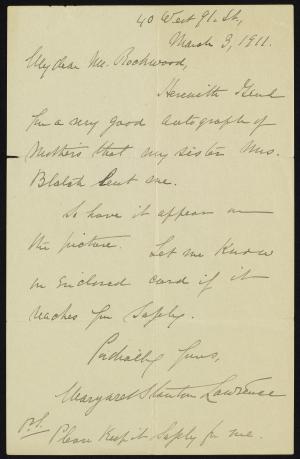 40 West 91. St,
March 3, 1911.
My dear Mr. Rockwood,
Herewith I send
you a very good autograph of
Mothers that my sister Mrs.
Blatch sent me.
to have it appear on
the picture. Let me know
on enclosed card if it
reaches you safely.
Cordially yours,
Margaret Stanton Lawrence
P.S. Please keep it safely for me.